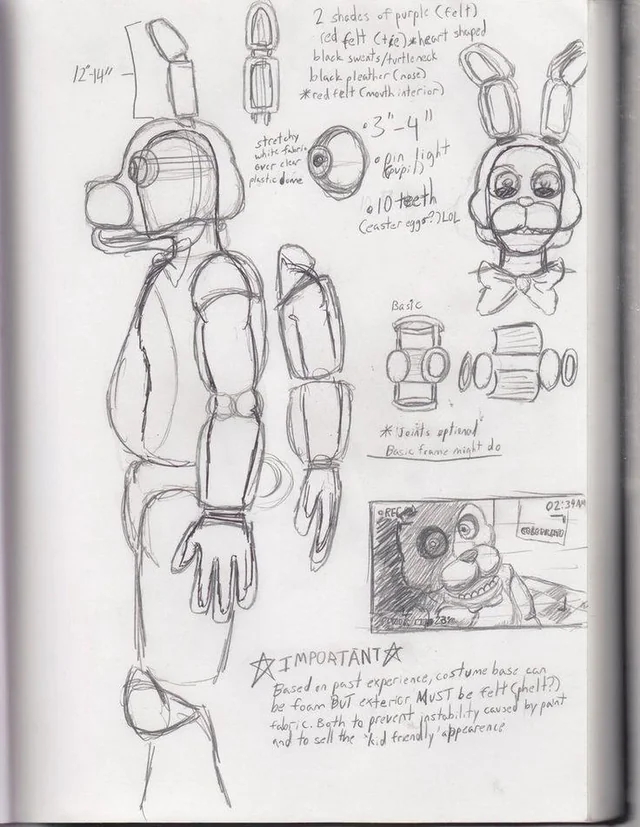 2 shades of purple (felt)
red felt (tie) *heart shaped
black sweats/turtleneck
black pleather (nose)
*red felt (mouth interior)
12"-14"
stretchy
white fabric
over clear
plastic dome
• 3"-4"
• pin light
(pupil)
• 10 teeth
(easter eggs?) LOL
Basic
* Joints optional
Basic frame might do
REC
02:34AM
☆IMPORTANT☆
Based on past experience, costume base can
be foam BUT exterior MUST be felt (phelt?)
fabric. Both to prevent instability caused by paint
and to sell the "kid friendly" appearence